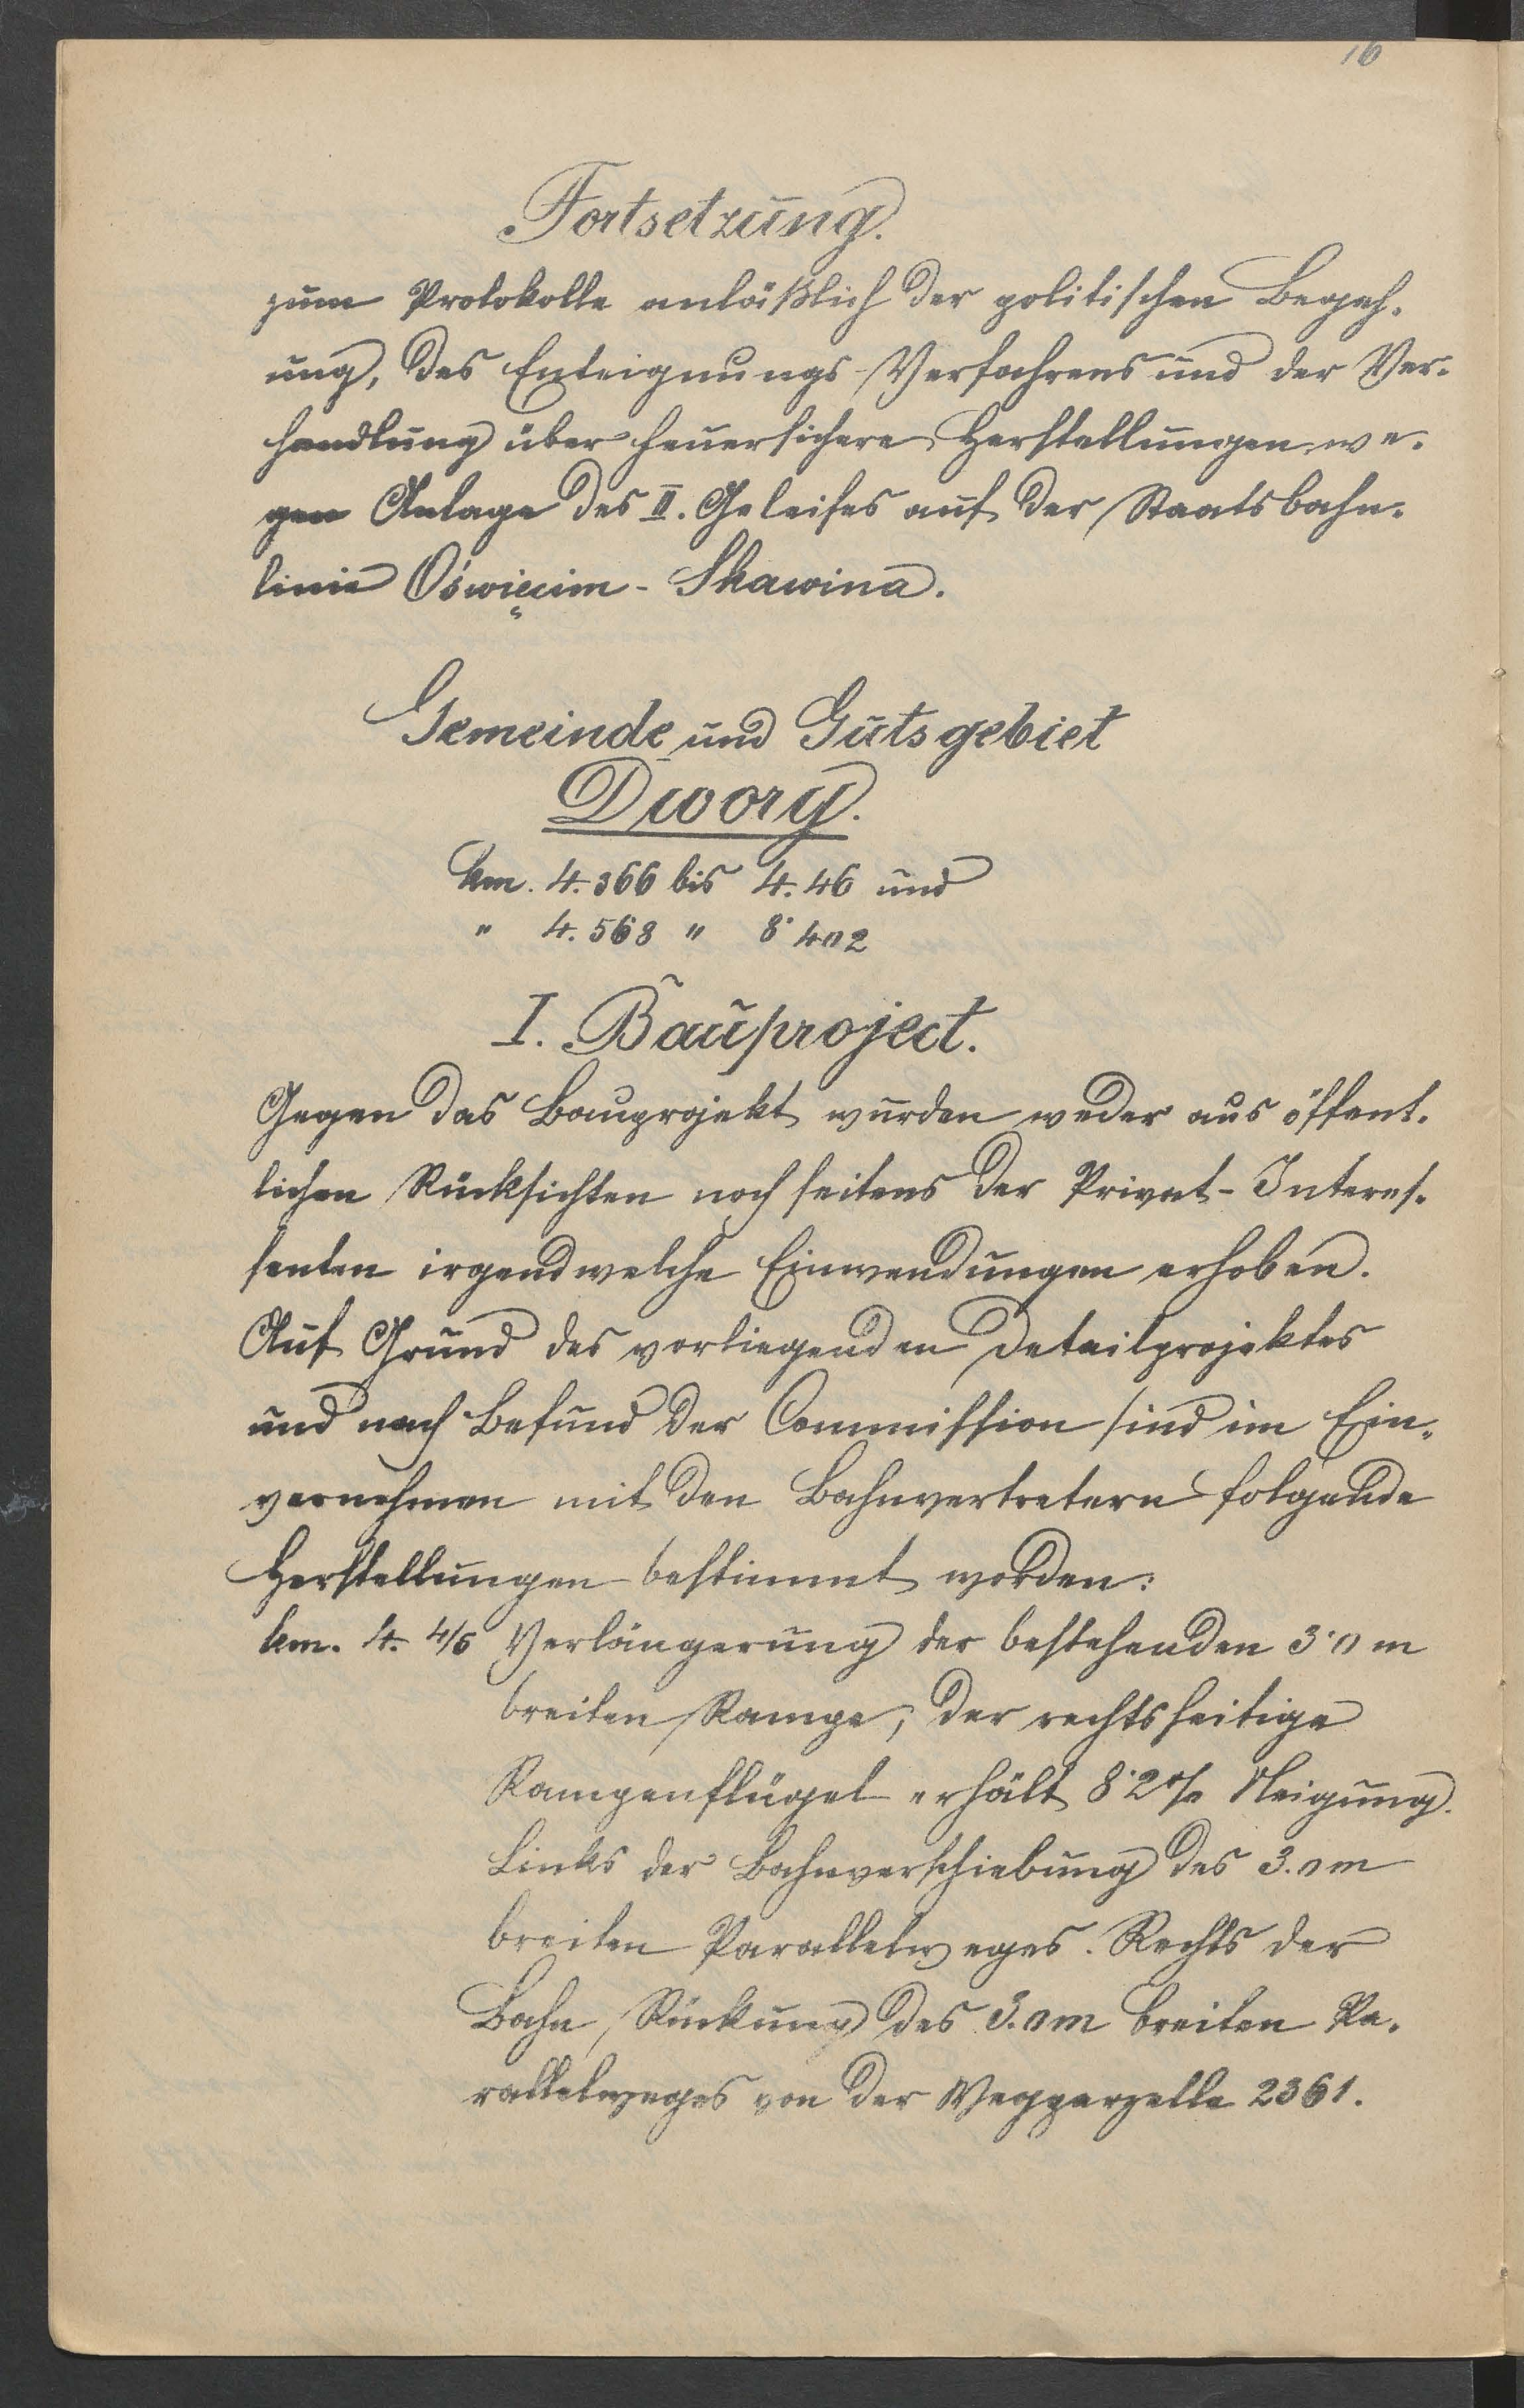 16
Fortsetzung.
zum Protokolle anläßlich der politischen Begeh-
ung, des Enteignungs-Verfahrens und der Ver-
handlung über feuersichere Herstellungen we-
gen Anlage des II. Geleises auf der Staatsbahn-
linie Oświęcim - Skawina.
Gemeinde und Gutsgebiet
Dwory.
km. 4.366 bis 4.46 und
" 4.568 " 8.402
I. Bauproject.
Gegen das Bauprojekt wurden weder aus öffent-
lichen Rücksichten noch seitens der Privat-Interes-
senten irgendwelche Einwendungen erhoben.
Auf Grund des vorliegenden Detailprojektes
und nach Befund der Commission sind im Ein-
vernehmen mit den Bahnvertretern folgende
Herstellungen bestimmt worden:
km. 4. 4/5 Verlängerung der bestehenden 3.0 m
breiten Rampe; der rechtsseitige
Rampenflügel erhält 8.2% Neigung.
Links der Bahnverschiebung des 3.0m
breiten Parallelweges. Rechts der
Bahn Rückung des 3.0m breiten Pa-
rallelweges von der Wegparzelle 2361.